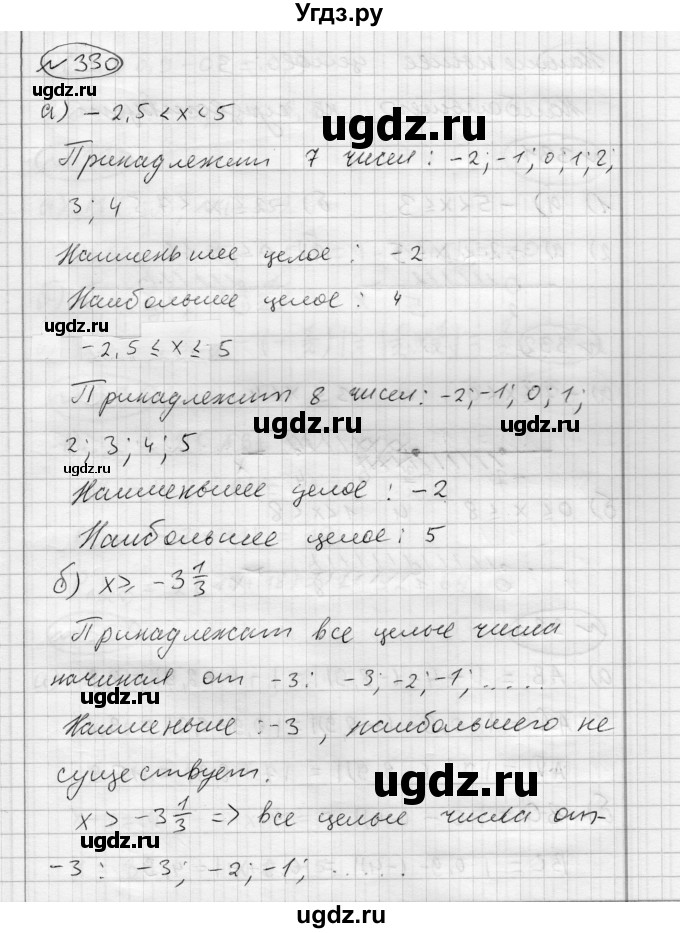 Угдз.ру
№ 330
а) -2,5 < x < 5
ugdz.ru
ugdz.ru
Принадлежит 7 чисел: -2; -1; 0; 1; 2;
3; 4
Наименьшее целое: -2
Наибольшее целое: 4
ugdz.ru
-2,5 ≤ x ≤ 5
Принадлежит 8 чисел: -2; -1; 0; 1;
ugdz.ru
2; 3; 4; 5
ugdz.ru
Наименьшее целое: -2
Наибольшее целое: 5
б) x ≥ -3 1/3
Принадлежат все целые числа
начиная от -3: -3; -2; -1; .....
ugdz.ru
Наименьше: -3, наибольшего не
существует.
ugdz.ru
x > -3 1/3 => все целые числа от
ugdz.ru
-3: -3; -2; -1; .....
ugdz.ru